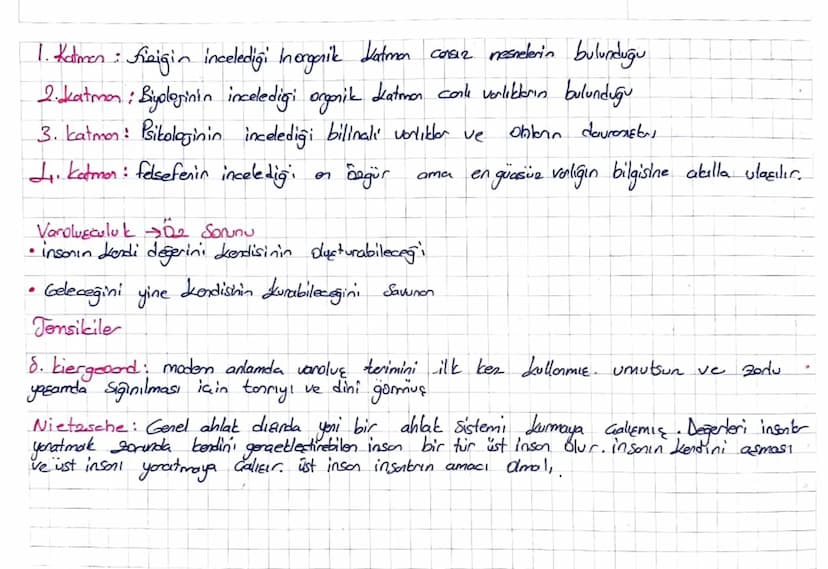 1. Katman : fiziğin incelediği inorganik katman cansız nesnelerin bulunduğu
2. katman : Biyolojinin incelediği organik katman canlı varlıkların bulunduğu
3. katman : Psikolojinin incelediği bilinçli varlıklar ve onların davranışları
4. katman : felsefenin incelediği en özgür ama en güçsüz varlığın bilgisine akılla ulaşılır.
Varoluşculuk → Öz Sorunu
• insanın kendi değerini kendisinin oluşturabileceği
• Geleceğini yine kendisinin kurabileceğini savunan
Temsilciler
S. kiergeoard : modern anlamda varoluş terimini ilk kez kullanmış. umutsun ve zorlu
yaşamda sığınılması için tanrıyı ve dini görmüş
Nietzsche : Genel ahlak dışında yeni bir ahlak sistemi kurmaya çalışmış. Değerleri insanlar
yaratmak zorunda kendini gerçekleştirebilen insan bir tür üst insan olur. insanın kendini aşması
ve üst insanı yaratmaya çalışır. üst insan insanların amacı olmalı,.